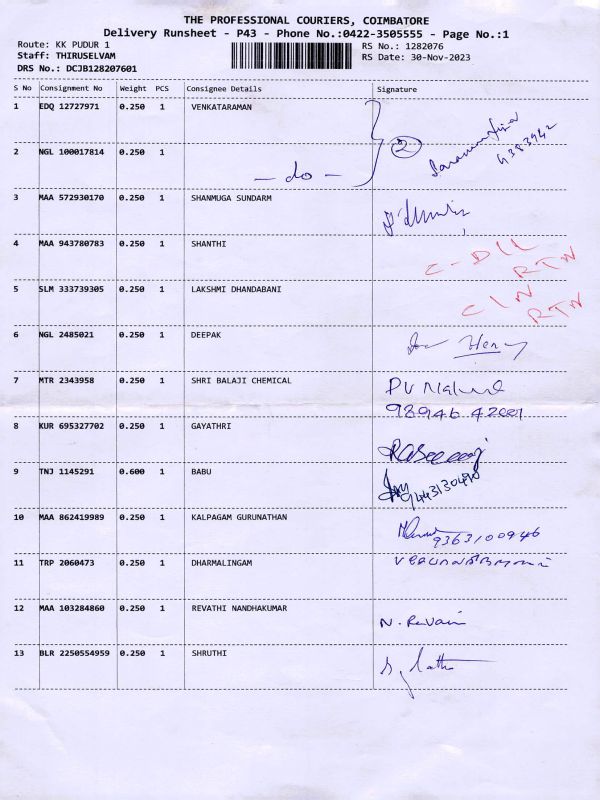 THE PROFESSIONAL COURIERS, COIMBATORE
Delivery Runsheet - P43 - Phone No.:0422-3505555 - Page No.:1
Route: KK PUDUR 1 RS No.: 1282076
Staff: THIRUSELVAM RS Date: 30-Nov-2023
DRS No.: DCJB128207601
S No Consignment No Weight PCS Consignee Details Signature
1 EDQ 12727971 0.250 1 VENKATARAMAN
2 NGL 100017814 0.250 1 - do - 2
3 MAA 572930170 0.250 1 SHANMUGA SUNDARM
4 MAA 943780783 0.250 1 SHANTHI C-DLL
RTN
5 SLM 333739305 0.250 1 LAKSHMI DHANDABANI C/N
RTN
6 NGL 2485021 0.250 1 DEEPAK Henry
7 MTR 2343958 0.250 1 SHRI BALAJI CHEMICAL PV
8 KUR 695327702 0.250 1 GAYATHRI
9 TNJ 1145291 0.600 1 BABU
10 MAA 862419989 0.250 1 KALPAGAM GURUNATHAN
9363100946
11 TRP 2060473 0.250 1 DHARMALINGAM
12 MAA 103284860 0.250 1 REVATHI NANDHAKUMAR N. Revathi
13 BLR 2250554959 0.250 1 SHRUTHI